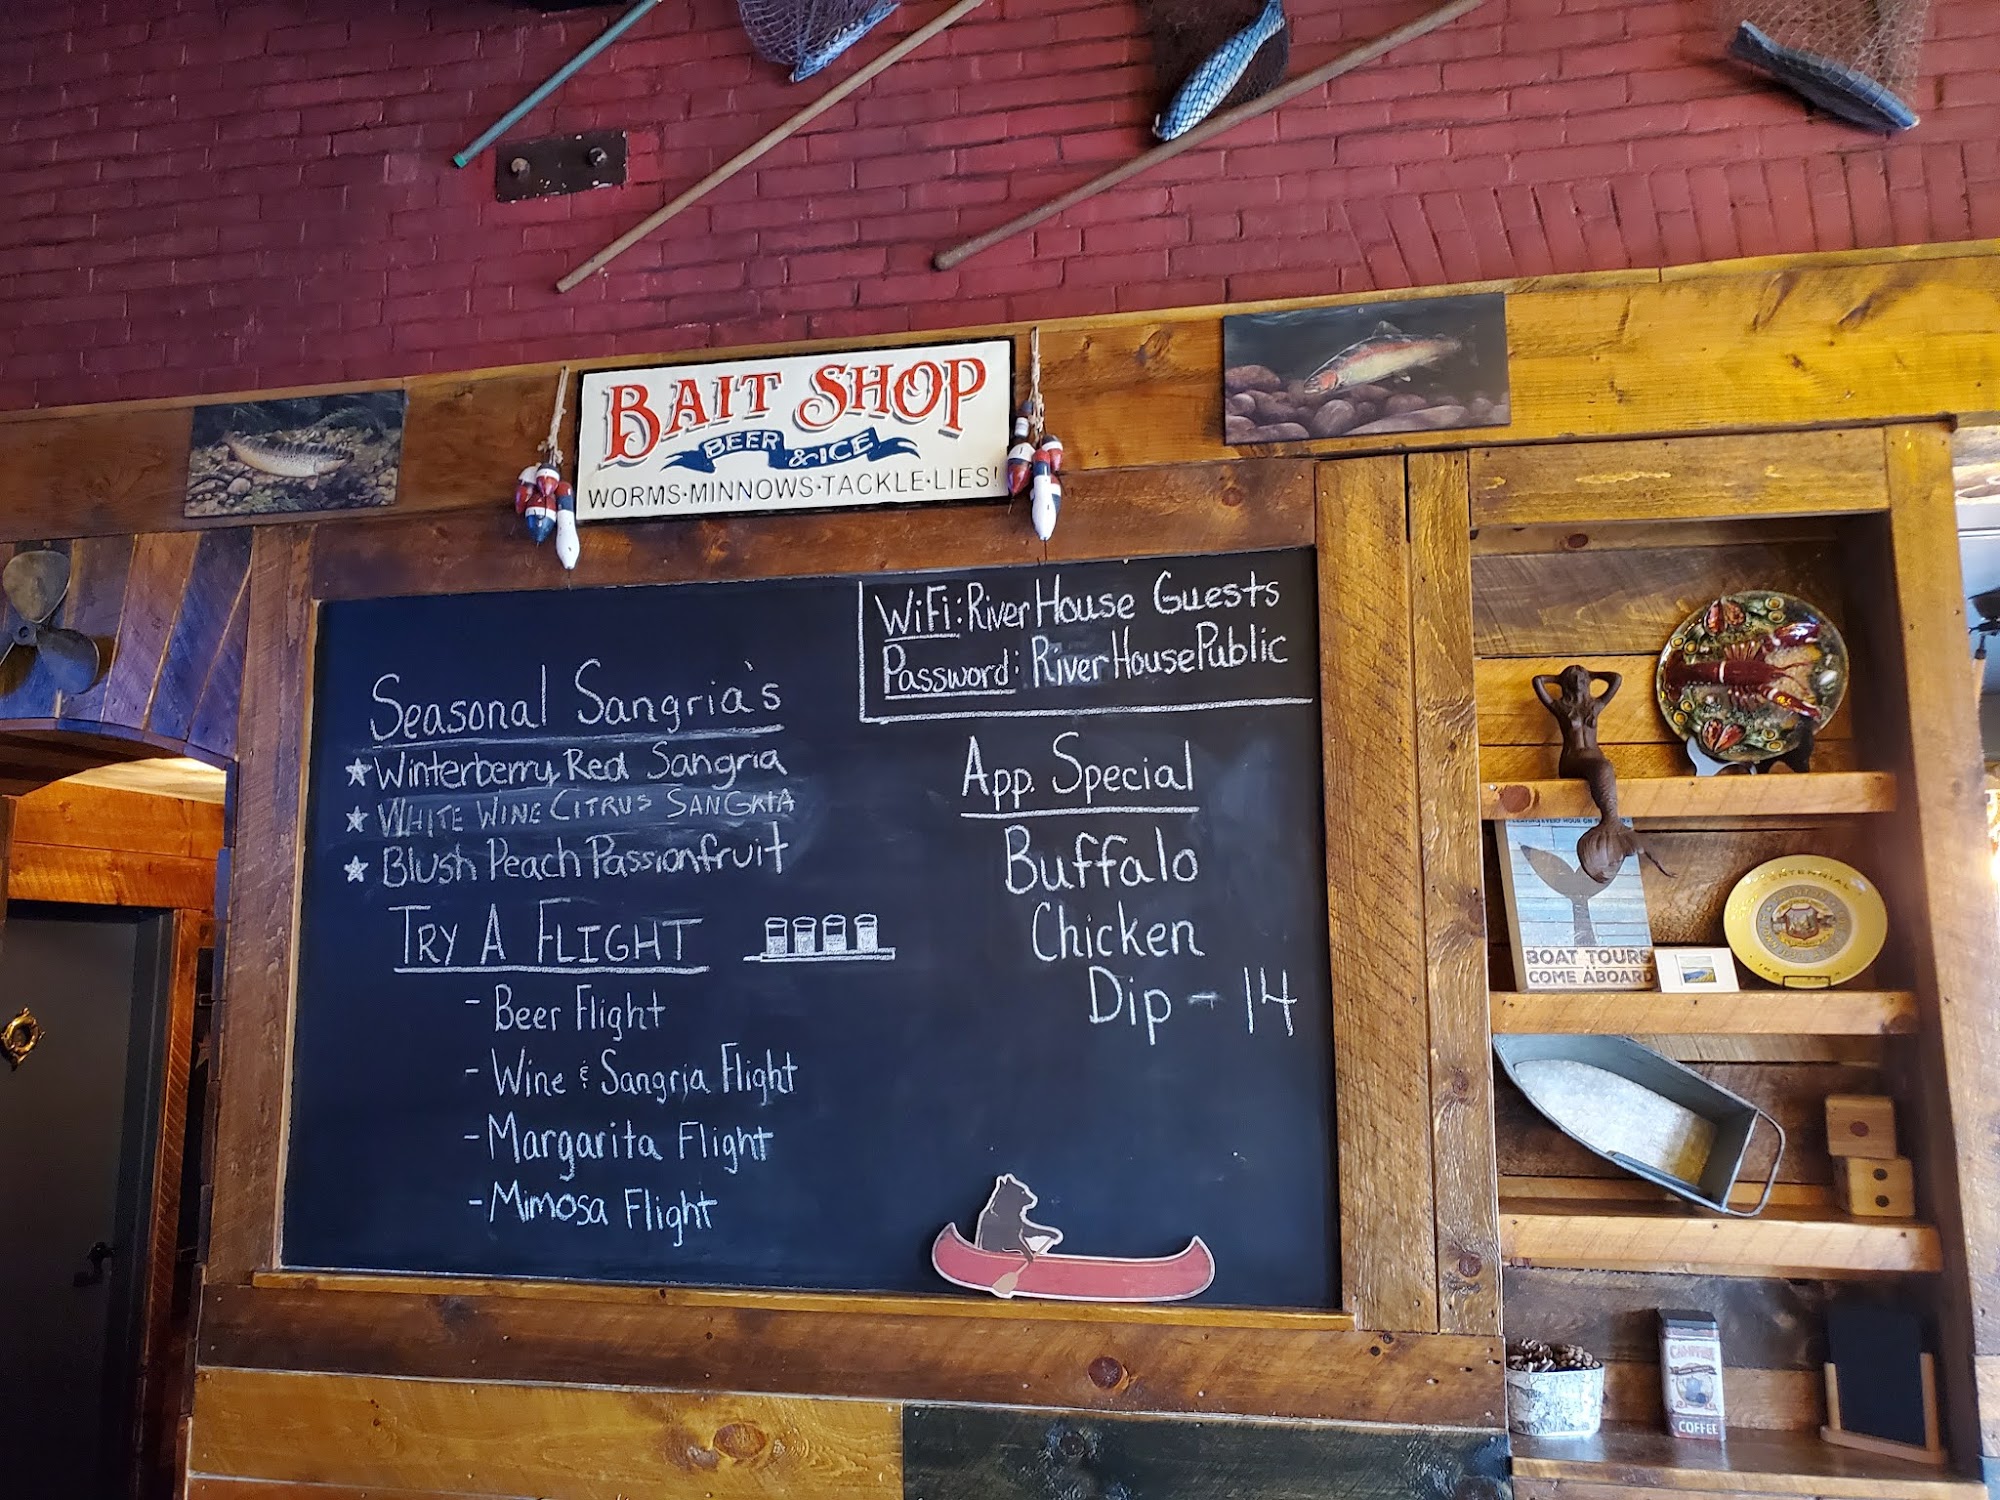 BAIT SHOP
BEER & ICE
WORMS·MINNOWS·TACKLE·LIES!
WiFi: River House Guests
Password: RiverHousePublic
Seasonal Sangria's
Winterberry Red Sangria
White Wine Citrus Sangria
Blush Peach Passionfruit
Try A Flight
- Beer Flight
- Wine & Sangria Flight
- Margarita Flight
- Mimosa Flight
App. Special
Buffalo
Chicken
Dip - 14
BOAT TOURS
COME ABOARD
CAMPFIRE
COFFEE